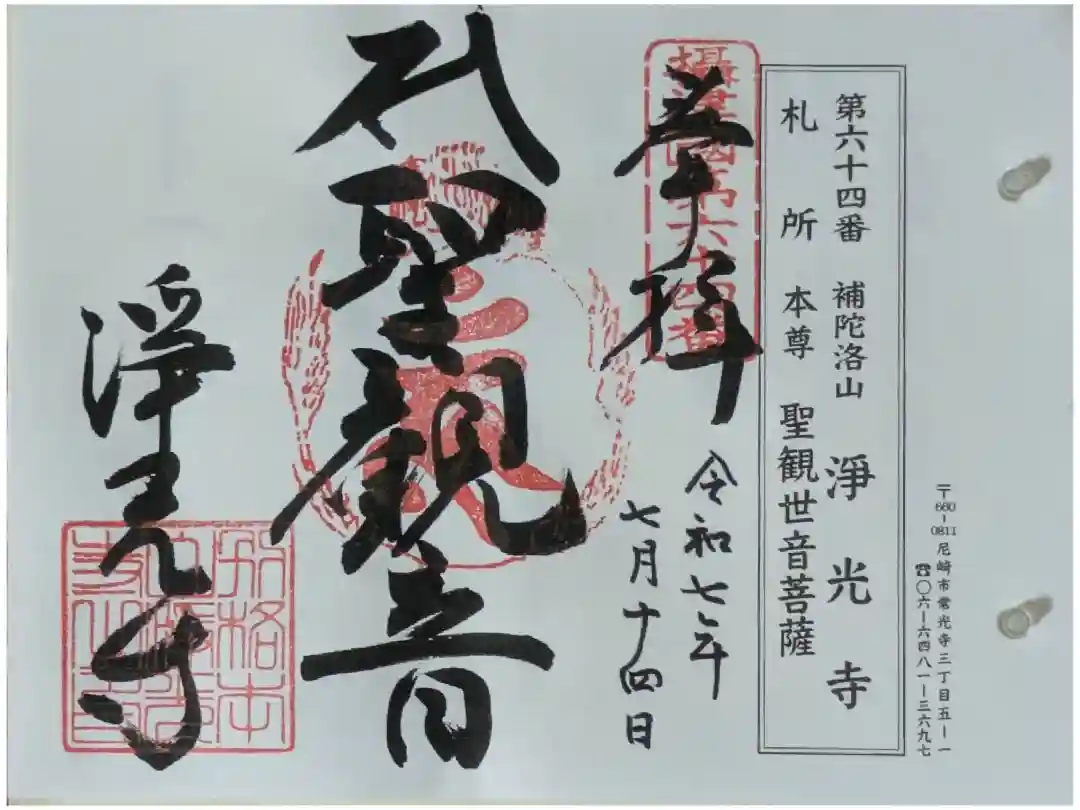 〒660-0811 尼崎市常光寺三丁目五ー一
☎〇六ー六四八一ー三六九七
第六十四番 補陀洛山 淨光寺
札所 本尊 聖観世音菩薩
攝津國第六十四番
奉拝
令和七年
七月十四日
聖観音
淨光寺
別格本
寺之印